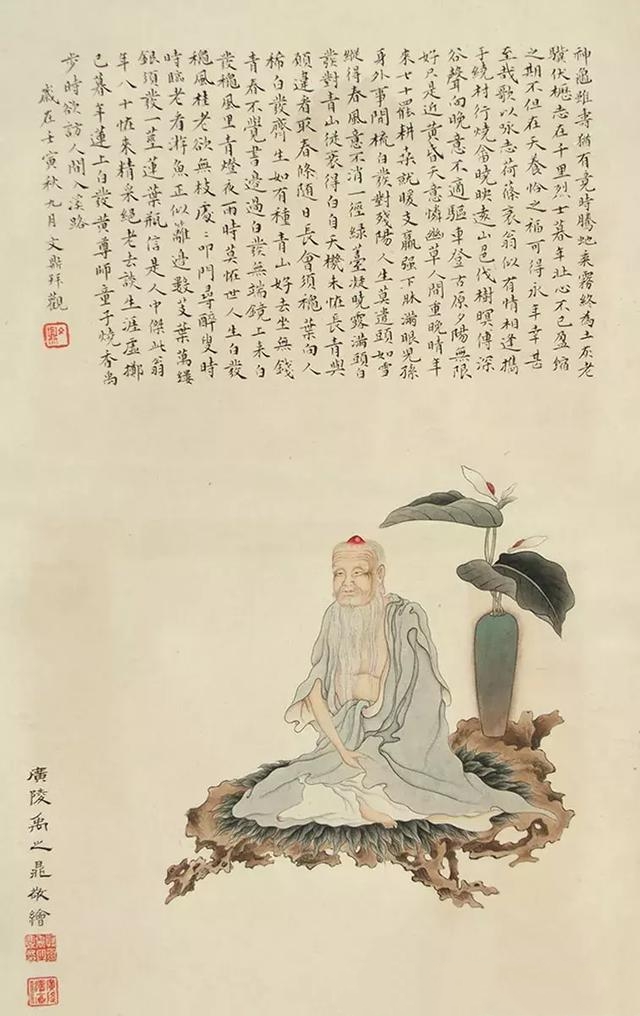 神龜雖壽猶有竟時騰蛇乘霧終為土灰老
驥伏櫪志在千里烈士暮年壯心不已盈縮
之期不但在天養怡之福可得永年幸甚
至哉歌以咏志荷蓧衰翁似有情相逢攜
手繞村行燒畬曉映遠山色伐樹暝傳深
谷聲向晚意不適驅車登古原夕陽無限
好只是近黃昏天意憐幽草人間重晚晴年
來七十罷耕桑就暖支羸强下牀滿眼兒孫
身外事閒梳白發對殘陽人生莫遣頭如雪
縱得春風意不消一徑綠薹凝曉露滿頭白
發對青山徒得白自天機未恠長青與
願違者取春條隨日長會須穐葉向人
稀白發齊生如有種青山好去坐無錢
青春不覺書邊過白發無端鏡上来白
發穐風里青燈夜雨時莫恠世人生白發
穐風桂老欲無枝處〻叩門尋醉叟時
時臨老者漸魚正似籬邊數葉萬縷
銀須發一莖蓮葉瓶信是人中傑此翁
年八十恠来精采絕老去談生涯虛擲
已暮年蓮上白發黃尊師童子燒香禹
步時欲訪人間入溪路
歲在壬寅秋九月文點拜觀
廣陵禹之鼎敬繪